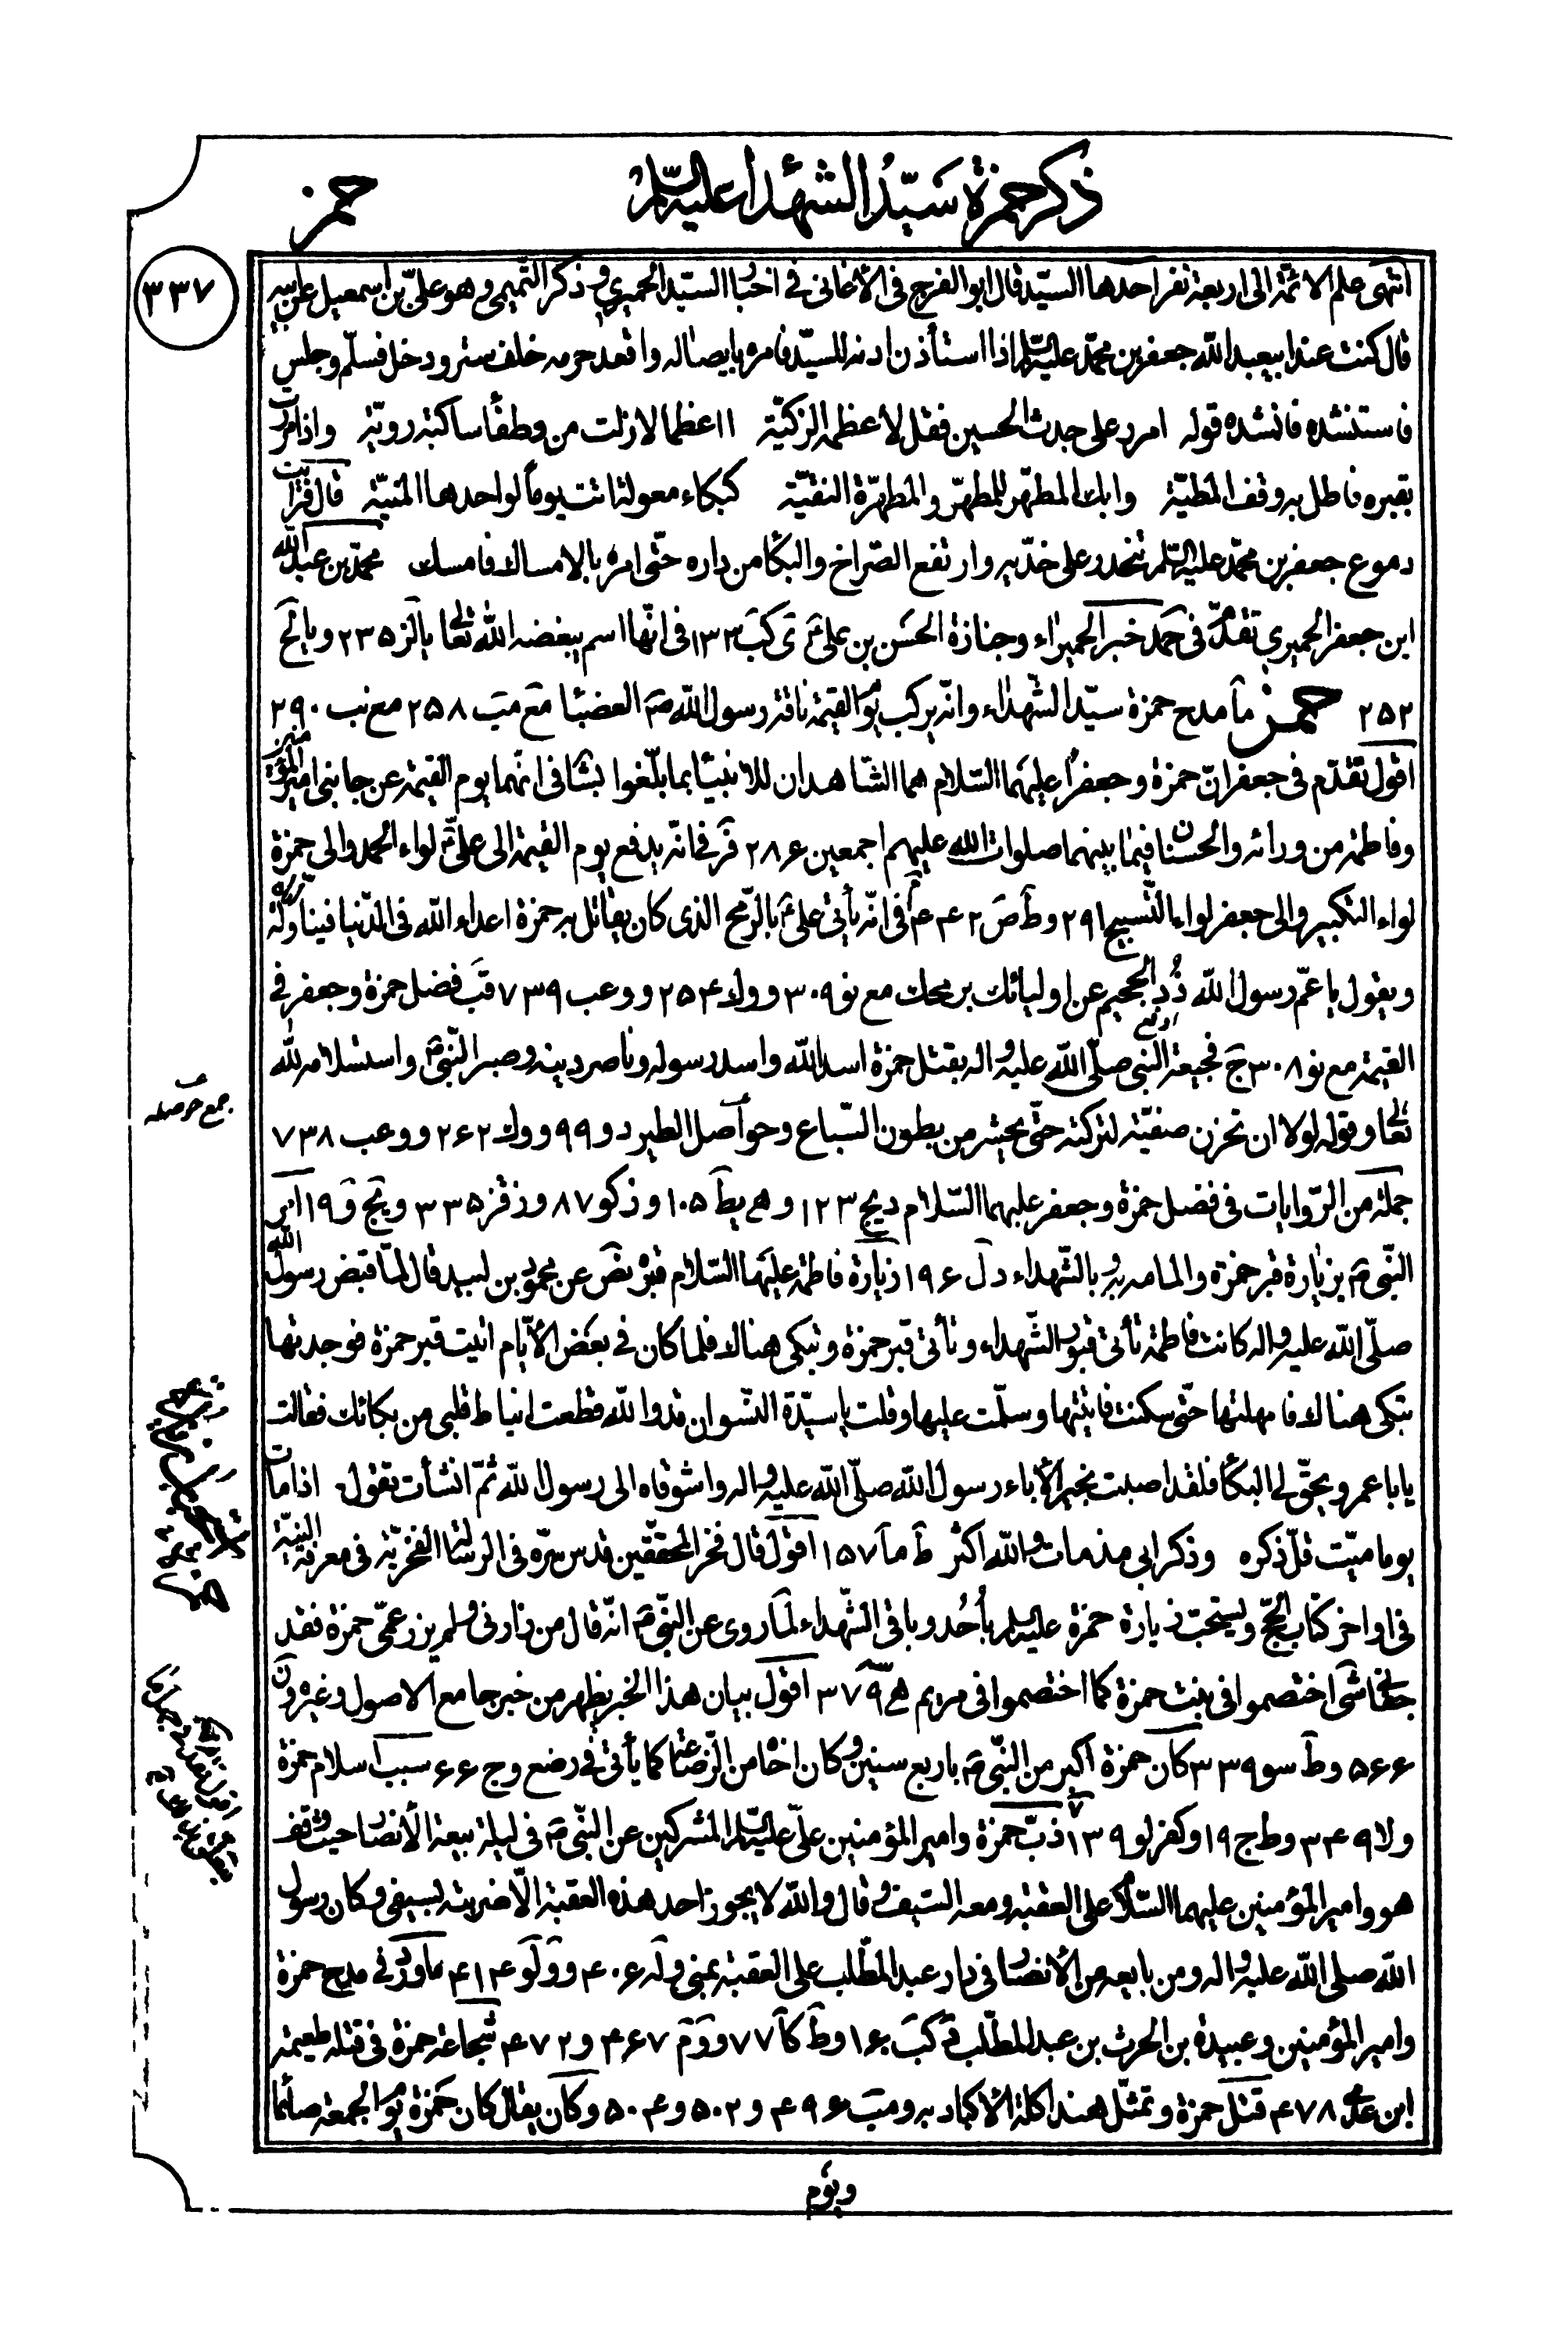 ذكر حمزة سيّد الشهداء عليه السّلم
حمز
٣٣٧
انتهى علم الائمّة الى اربعة نفر احدها السيّد قال ابو الفرج فى الأغانى فى اخبار السيّد الحميري وذكر التّميمى وهو علىّ بن اسمعيل عن ابيه
قال كنت عند ابيعبد الله جعفر بن محمّد عليه السّلم اذا استأذن اذنه للسيّد فامره بايصاله واقعد حرمه خلف ستر ودخل فسلّم وجلس
فاستنشده فانشده قوله امرر على جدث الحسين فقل لأعظمه الزكيّة ااعظما لازلت من وطفآء ساكبة رويّة واذا مررت
بقبره فاطل به وقف المطيّة وابك المطهّر للمطهّر والمطهّرة النقيّة كبكاء معولة اتت يوماً لواحدها المنيّة قال فرايت
دموع جعفر بن محمّد عليه السّلم تتحدر على خدّيه وارتفع الصّراخ والبكآء من داره حتّى امره بالامساك فامسك محمّد بن عبد الله
ابن جعفر الحميري تقدّم فى حمد خبر الحميراء وجنازة الحسن بن علىّ ع ى كب ١٣٣ فى انّها اسم يبغضه الله تعالى يا لز ٢٣٥ ويا لح
٢٥٢ حمز مآ مدح حمزة سيّد الشّهداء وانّه يركب يوم القيمة ناقة رسول الله ص العضبآء مع مب ٢٥٨ مع نب ٢٩٠
اقول تقدّم فى جعفر انّ حمزة وجعفراً عليهما السّلام هما الشّاهدان للانبيآء بما بلّغوا بشا فى انّهما يوم القيمة عن جانبى امير المؤمنين
وفاطمة من ورائه والحسنان فيما بينهما صلوات الله عليهم اجمعين ٢٨٦ فر فى انّه يدفع يوم القيمة الى علىّ ع لواء الحمد والى حمزة
لواء التكبير والى جعفر لواء التّسبيح ٢٩١ وط ص ٤٤٢ م فى انّه يأتى علىّ ع بالرّمح الذى كان يقاتل به حمزة اعداء الله فى الدّنيا فيناوله
ويقول يا عمّ رسول الله ذُد الجحيم عن اوليائك برمحك مع نو ٣٠٩ وو ك ٢٥٤ وو عب ٧٣٩ قب فضل حمزة وجعفر فى
القيمة مع نو ٣٠٨ ج فجيعة النّبى صلّى الله عليه واله بقتل حمزة اسد الله واسد رسوله وناصر دينه وصبر النّبىّ ص واستسلامه لله
تعالى وقوله لولا ان تحزن صفيّة لتركته حتّى يحشر من بطون السّباع وحواصل الطير د و ٩٩ وو ك ٢٦٢ وو عب ٧٣٨
جملة من الرّوايات فى فضل حمزة وجعفر عليهما السّلام د يج ١٢٣ وهـ يط ١٠٥ وز كو ٨٧ وز قز ٣٣٥ ويج و ١٩ امر
النّبى ص بزيارة قبر حمزة والمامه به وبالشّهداء د ل ١٩٦ زيارة فاطمة عليها السّلام قبره نص عن محمود بن لبيد قال لمّا قبض رسول الله
صلّى الله عليه واله كانت فاطمة تأتى قبور الشّهداء وتأتى قبر حمزة وتبكى هناك فلما كان فى بعض الأيّام اتيت قبر حمزة فوجدتها
تبكى هناك فامهلتها حتّى سكنت فاتيتها وسلّمت عليها وقلت يا سيّدة النّسوان قد والله قطعت انياط قلبى من بكائك فقالت
يابا عمر ويحقّ لى البكآء فلقد اصبت بخير الأباء رسول الله صلّى الله عليه واله واشوقاه الى رسول الله ثمّ انشأت تقول اذا مات
يوما ميّت قلّ ذكره وذكر ابى مذ مات والله اكثر ط مآ ١٥٧ اقول قال فخر المحققّين قدس سرّه فى الرسالة الفخريّة فى معرفة النيّة
فى اواخر كتاب الحجّ ويستحبّ زيارة حمزة عليه السّلم بأُحد وباقى الشّهداء لما روى عن النّبىّ ص انّه قال من زارنى ولم يزر عمّى حمزة فقد
جفانى شى اختصموا فى بنت حمزة كما اختصموا فى مريم هـ ٣٧٩ اقول بيان هذا الخبر يظهر من خبر جامع الاصول وغيره ون
٥٦٦ وط سو ٣٣٩ كان حمزة اكبر من النّبىّ ص باربع سنين وكان اخاه من الرّضاعة كما يأتى فى رضع وج ٦٦ سبب اسلام حمزة
ولا ٣٤٩ وط ج ١٩ وكفر لو ١٣٩ ذبّ حمزة وامير المؤمنين علىّ عليه السّلم المشركين عن النّبىّ ص فى ليلة بيعة الأنصار حيث وقف
هو وامير المؤمنين عليهما السّلام على العقبة ومعه السّيف وقال والله لا يجوز احد هذه العقبة الّا ضربته بسيفى وكان رسول
الله صلى الله عليه واله ومن بايعه من الأنصار فى دار عبد المطّلب على العقبة بمنى و له ٤٠٦ وو لو ٤١٤ ما ورد فى مدح حمزة
وامير المؤمنين وعبيدة بن الحرث بن عبد المطّلب و كب ١٠٦ وط كا ٧٧ وو م ٤٦٧ و ٤٧٢ شجاعة حمزة فى قتله طعيمة
ابن عدى ٤٧٨ قتل حمزة وتمثّل هند اكلة الأكباد به و مب ٤٩٦ و ٥٠٢ و ٥٠٤ وكان يقال كان حمزة يوم الجمعة صائما
ويوم
جمع حوصله